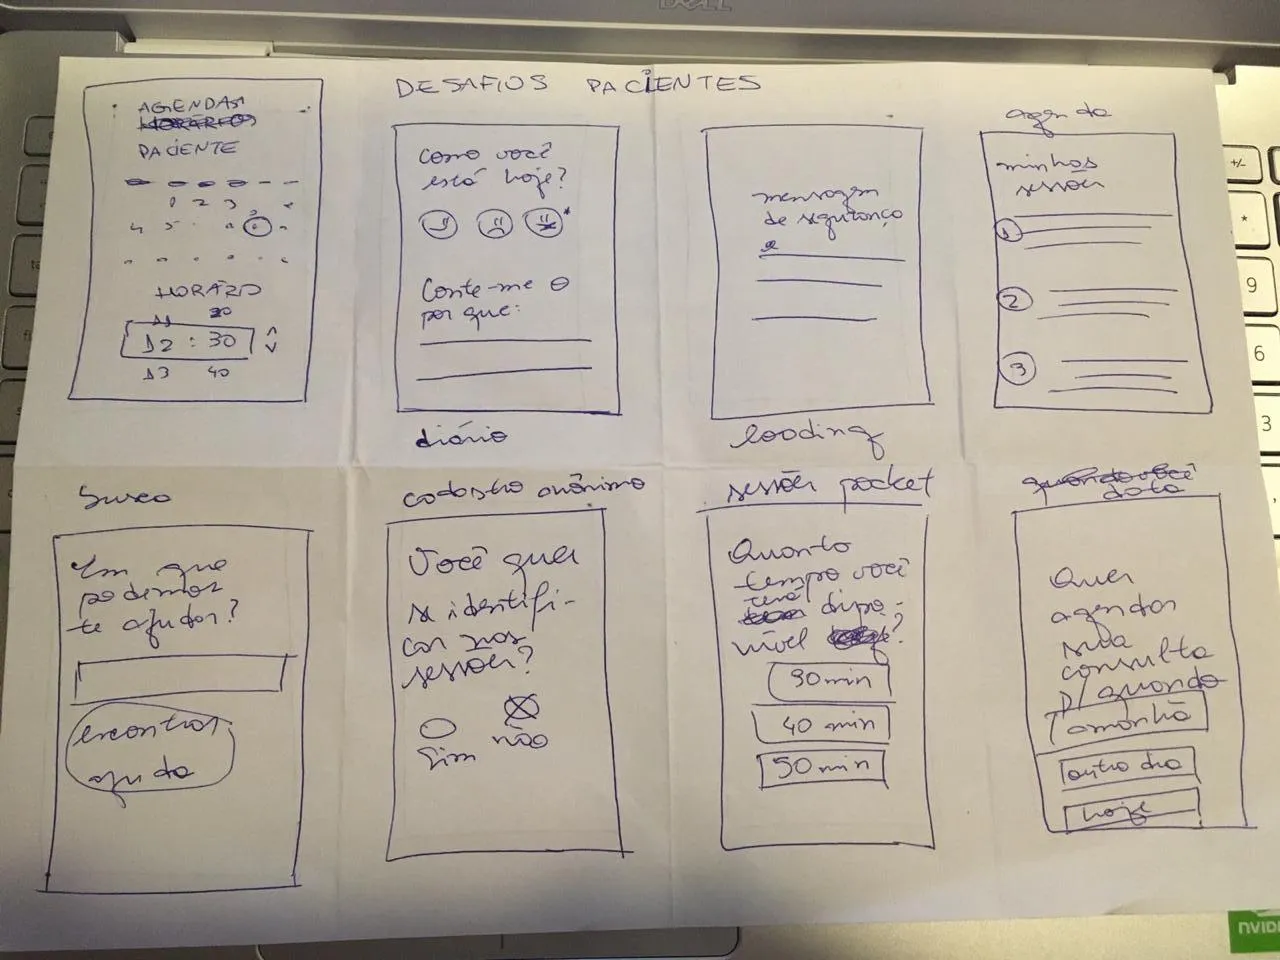 DELL
DESAFIOS PACIENTES
AGENDAR
HORÁRIOS
PACIENTE
1 2 3
4 5
HORÁRIO
11 20
12 : 30
13 40
Como você
está hoje?
Conte-me o
por que:
diário
mensagem
de segurança
loading
agenda
minhas
sessões
1
2
3
busca
Em que
podemos
te ajudar?
encontrar
ajuda
cadastro anônimo
Você quer
se identifi-
car nas
sessões?
Sim não
sessões pocket
Quanto
tempo você
terá dispo-
nível ?
30 min
40 min
50 min
quando você
data
Quer
agendar
sua
consulta
p/ quando
amanhã
outro dia
hoje
+/-
*
9
6
3
NVIDI